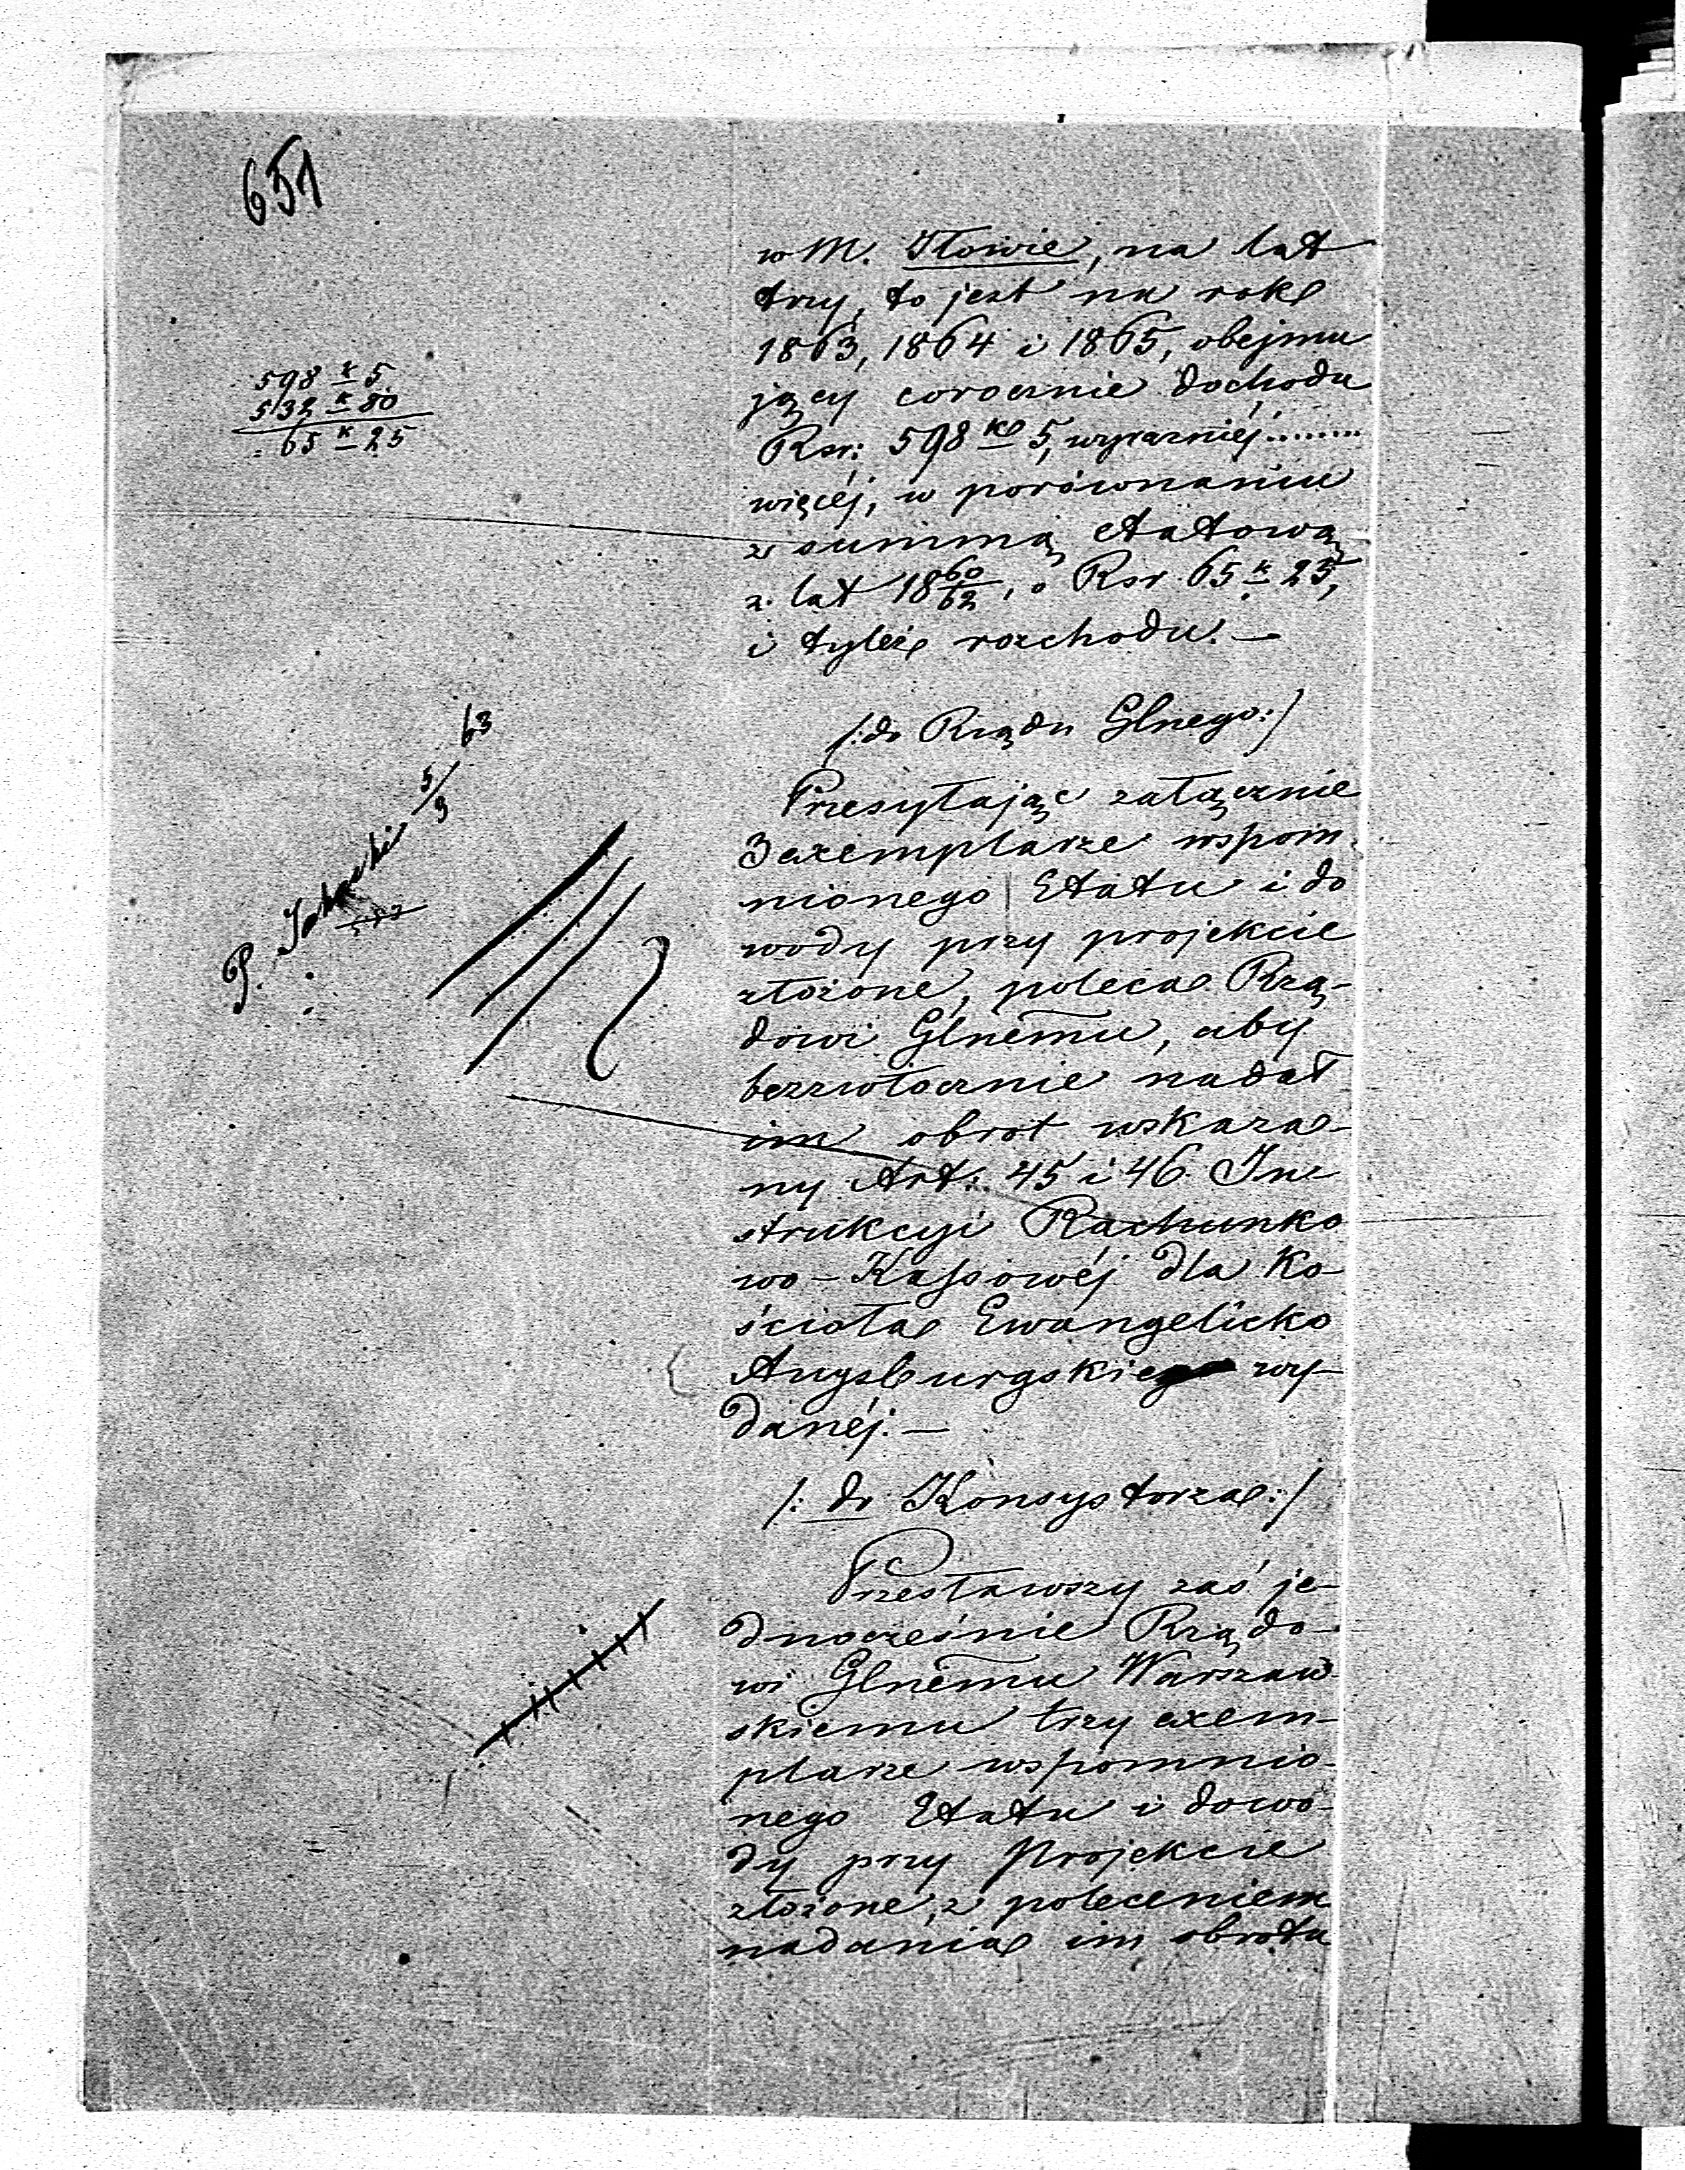 651
w M. Iłowie, na lat
trzy, to jest na rok
1863, 1864 i 1865, obejmu
jący corocznie dochodu
Rsr: 598 k 5, wyraźniéj........
więcéj, w porównaniu
z summą etatową
z lat 18 60/62, o Rsr. 65 k 25,
i tyleż rozchodu. —
598 k 5
532 k 80
65 k 25
/: do Rządu Glnego :/
Przesyłając załącznie
3 exemplarze wspom
nionego Etatu i do
wody przy projekcie
złożone, poleca Rzą-
dowi Glnemu, aby
bezzwłocznie nadał
im obrot wskaza-
ny Art: 45 i 46 In-
strukcyi Rachunko
wo-Kassowéj dla Ko-
ścioła Ewangelicko
Augsburgskiego wy-
danéj. —
P. 5/9 63
/: do Konsystorza :/
Przesławszy zaś je-
dnocześnie Rządo-
wi Glnemu Warszaw
skiemu trzy exem-
plarze wspomnio-
nego Etatu i dowo-
dy przy Projekcie
złożone, z poleceniem
nadania im obrotu